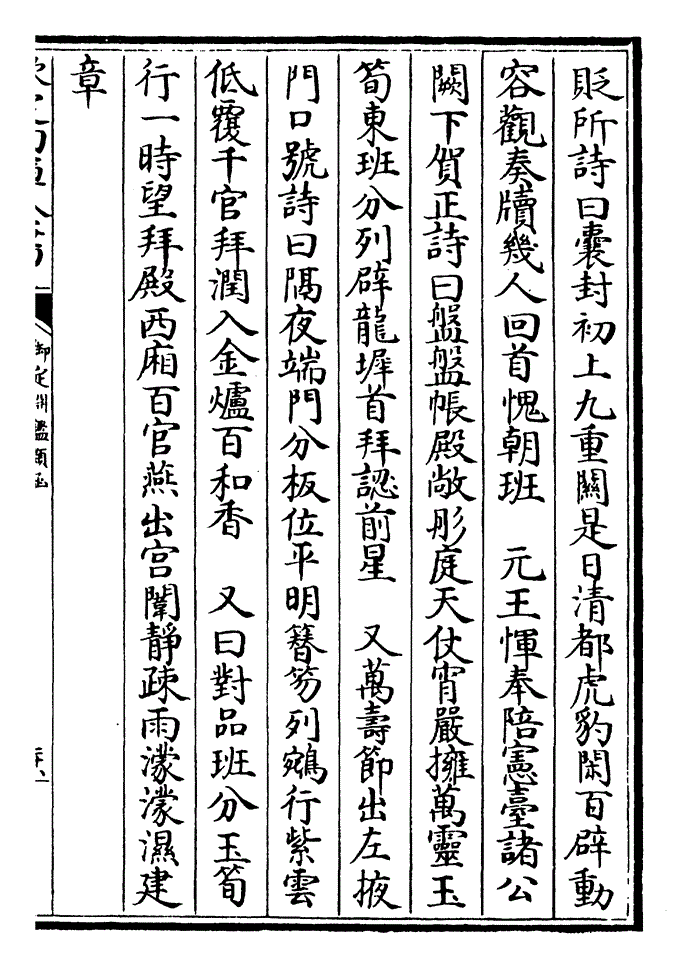 貶所詩曰囊封初上九重闗是日清都虎豹閑百辟動
容觀奏牘幾人回首愧朝班　元王惲奉陪憲臺諸公
闕下賀正詩曰盤盤帳殿敞彤庭天仗宵嚴擁萬靈玉
筍東班分列辟龍墀首拜認前星　又萬壽節出左掖
門口號詩曰隔夜端門分板位平明簪笏列鵷行紫雲
低覆千官拜潤入金爐百和香　又曰對品班分玉筍
行一時望拜殿西廂百官燕出宫闈靜疎雨濛濛濕建
章
御定淵鑑類函